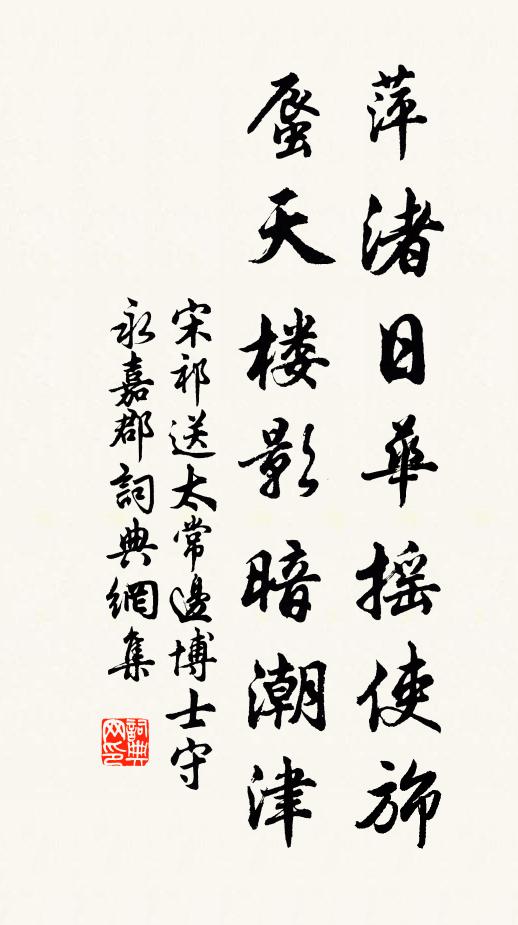 萍渚日華摇使旆
蜃天楼影暗潮津
宋祁送太常邊博士守
永嘉郡詞典網集
詞典
网印